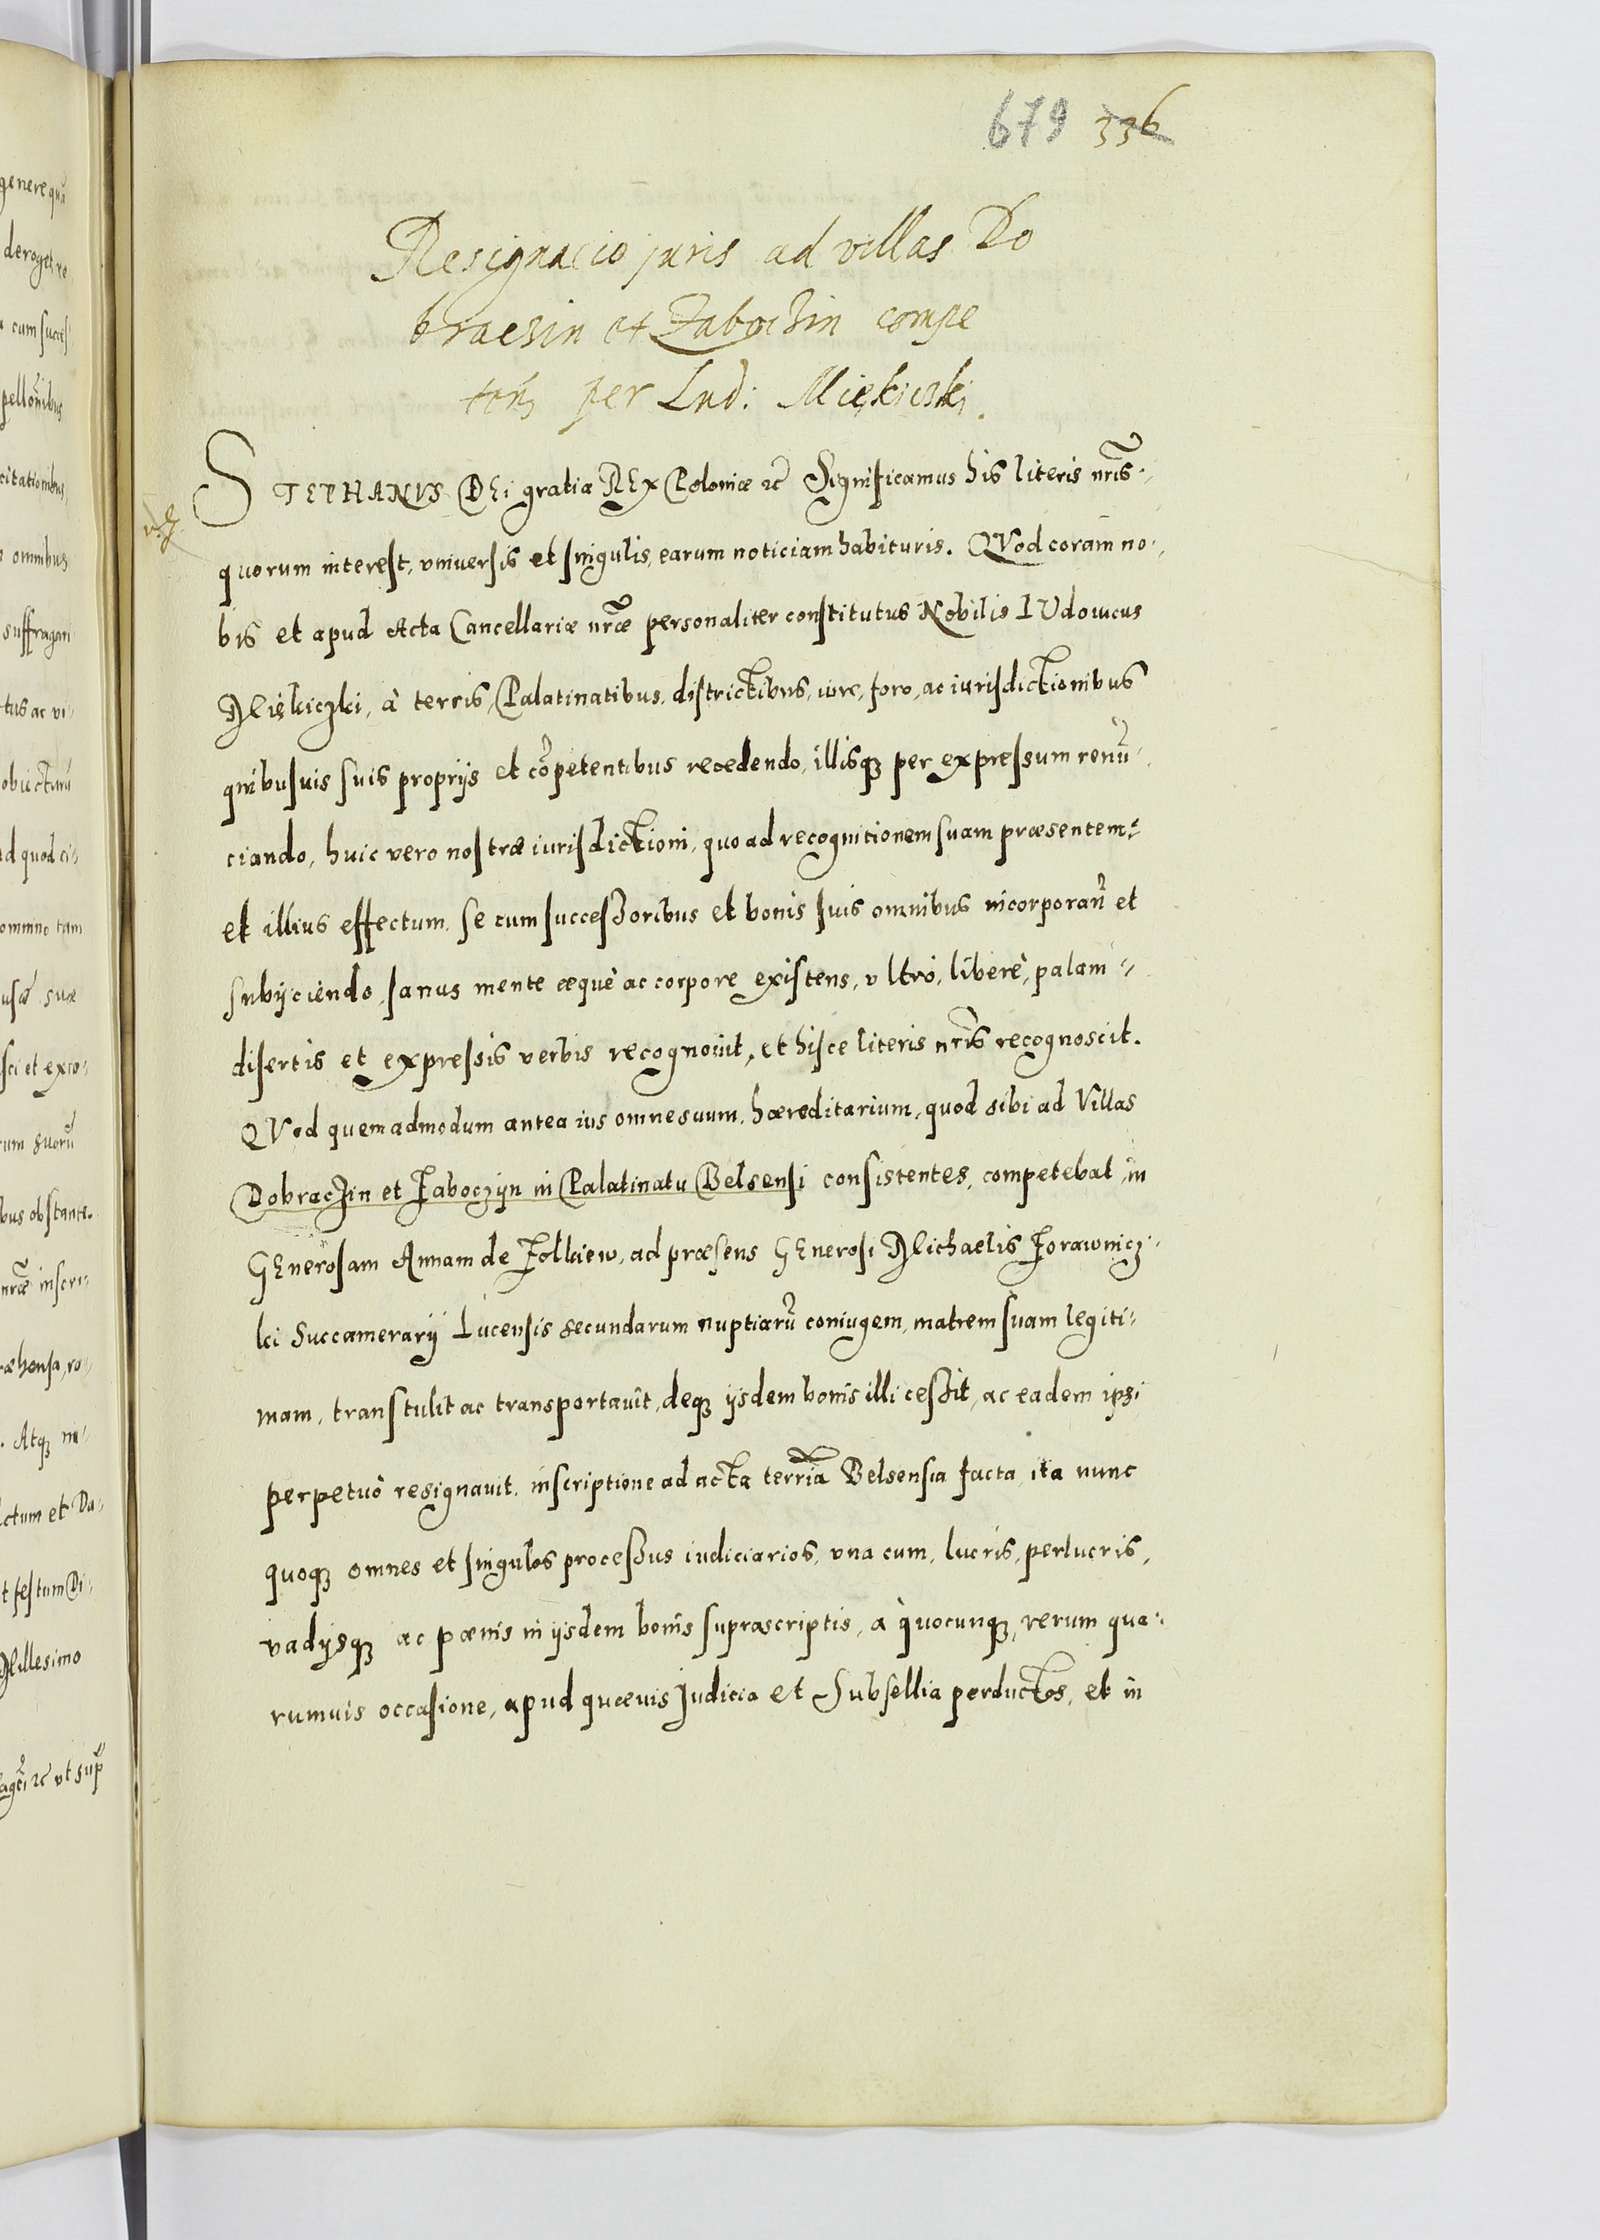 679 336
Resignacio juris ad villas Do
braczin et Zaboczin compe
ten̄ per Lud: Miękiczki.
STEPHANVS DEi gratia REx Poloniæ ꝛc̃ Significamus his literis nr̃is.
quorum interest, vniuersis et singulis, earum noticiam habituris. QVod coram no-
bis et apud Acta Cancellariæ nr̃æ personaliter constitutus Nobilis LVdouicus
Miękiczki, à terris, Palatinatibus, districtibus, iure, foro, ac iurisdictionibus
quibusuis suis proprijs et cõpetentibus recedendo, illisqꝫ per expressum renũ-
ciando, huic vero nostræ iurisdictioni, quo ad recognitionem suam præsentem,
et illius effectum, se cum successoribus et bonis suis omnibus incorporañ et
subijciendo, sanus mente æquè ac corpore existens, vltrò, liberè, palam
disertis et expressis verbis recognouit, et hisce literis nr̃is recognoscit.
QVod quemadmodum antea ius omne suum, hæreditarium, quod sibi ad Villas
Dobraczin et Zaboczyn in Palatinatu Belsensi consistentes, competebat, in
GEnerosam Annam de Zolkiew, ad præsens GEnerosi Michaelis Zorawnicz-
ki Succamerarij Lucensis secundarum nuptiarũ coniugem, matrem suam legiti-
mam, transtulit ac transportauit, deqꝫ ijsdem bonis illi cessit, ac eadem ipsi
perpetuò resignauit, inscriptione ad acta terrĩa Belsensia facta, ita nunc
quoqꝫ omnes et singulos processus iudiciarios, vna cum, lucris, perlucris,
vadijsqꝫ ac pœnis in ijsdem bonis suprascriptis, à quocunqꝫ, rerum qua-
rumuis occasione, apud quæuis Judicia et Subsellia perductos, et in